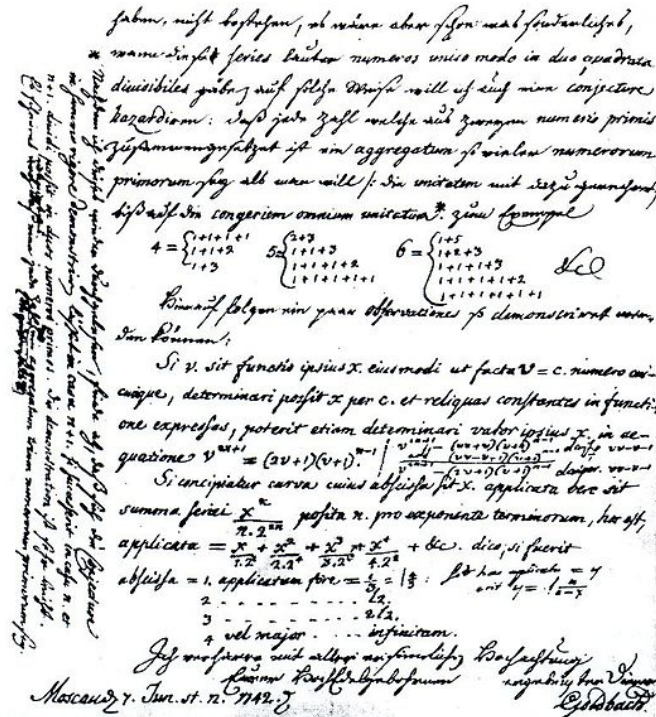 haben, nicht bestehen, es wäre aber schon was sonderliches,
wann diese series lauter numeros unico modo in duo quadrata
divisibiles gäbe, auf solche Weise will ich auch eine conjecture
hazardiren: daß jede Zahl welche aus zweyen numeris primis
zusammengesetzet ist ein aggregatum so vieler numerorum
primorum sey als man will /: die unitatem mit dazu gerechnet:/
biß auf die congeriem omnium unitatum*. zum Exempel
4 = { 1+1+1+1 / 1+1+2 / 1+3   5 = { 2+3 / 1+1+3 / 1+1+1+2 / 1+1+1+1+1   6 = { 1+5 / 1+2+3 / 1+1+1+3 / 1+1+1+1+2 / 1+1+1+1+1+1   &c
Hierauf folgen ein paar observationes so demonstriret wer-
den können:
Si v. sit functio ipsius x. eiusmodi ut facta v = c. numero cui-
cunque, determinari possit x per c. et reliquas constantes in functi-
one expressas, poterit etiam determinari valor ipsius x. in ae-
quatione v^{2n+1} = (2v+1)(v+1)^{n-1}
Si concipiatur curva cuius abscissa sit x. applicata vero sit
summa seriei x^n / n.2^{2n} posita n. pro exponente terminorum, hoc est,
applicata = x/1.2² + x²/2.2⁴ + x³/3.2⁶ + x⁴/4.2⁸ + &c. dico, si fuerit
abscissa = 1. applicatam fore =
2 . . . . . . . . l2.
3 . . . . . . . . 2l2.
4 vel major . . . . infinitam.
Ich verharre mit aller Hochachtung
Eurer Hochedelgebohrnen ergebenster Diener
Moscau d. 7. Jun. st. n. 1742. Goldbach.
* Nachdem ich dieses wieder durchgelesen, finde ich, daß sich die conjecture
in summo rigore demonstriren lässet in casu n+1. si successerit in casu n. et
n+1. dividi possit in duos numeros primos. Die demonstration ist sehr leicht.
Es scheinet wenigstens, daß eine jede Zahl die grösser ist als 2 ein aggregatum trium numerorum primorum sey.